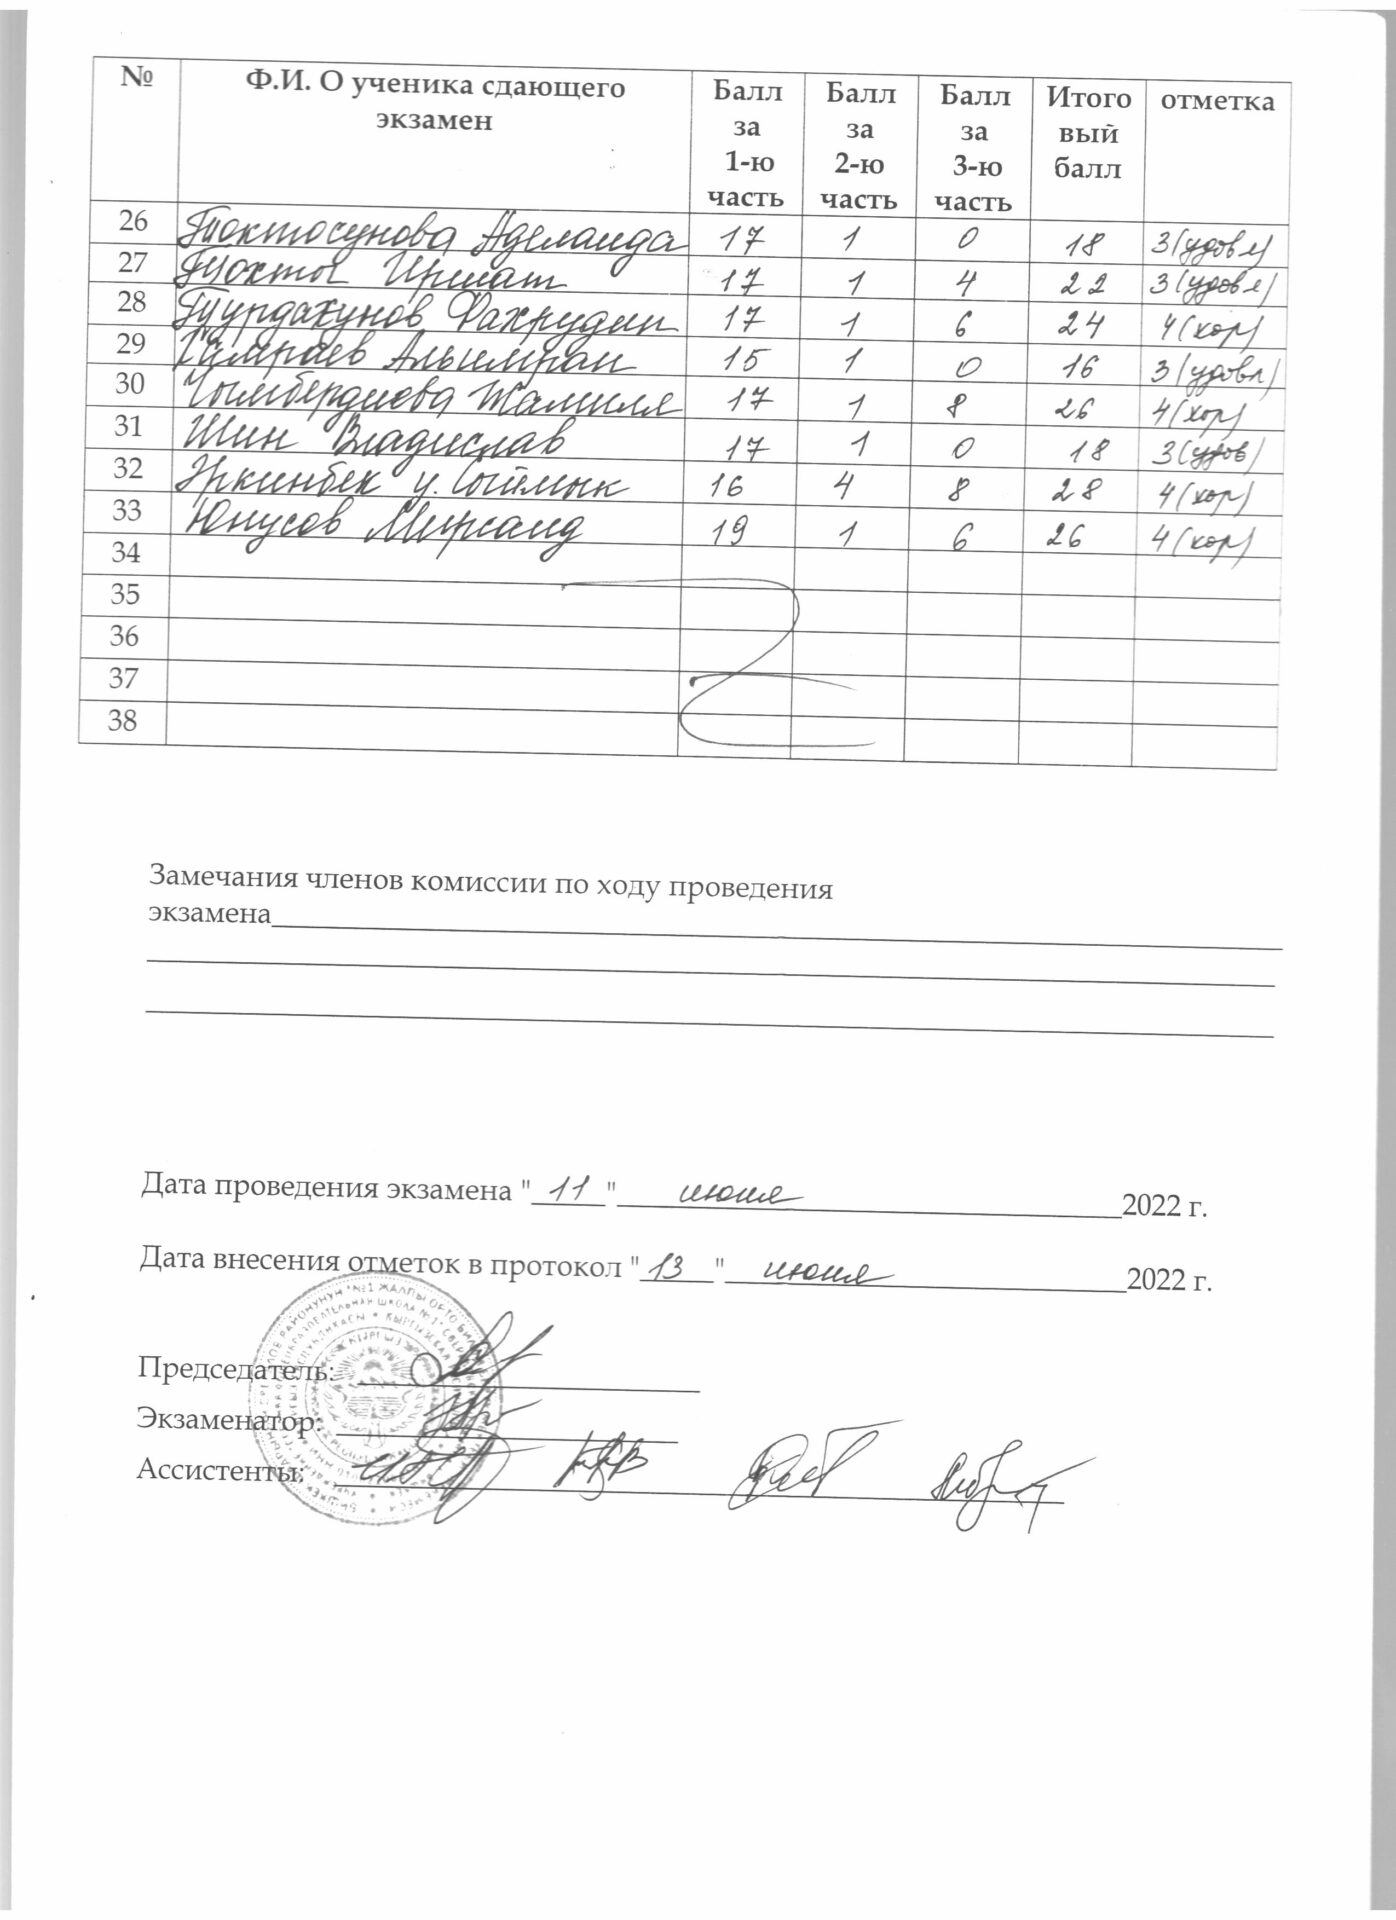 № Ф.И. О ученика сдающего экзамен Балл за 1-ю часть Балл за 2-ю часть Балл за 3-ю часть Итого вый балл отметка
26 Токтосунова Аделаида 17 1 0 18 3(удовл)
27 Токты Иршат 17 1 4 22 3(удовл)
28 Турдахунов Фахрудин 17 1 6 24 4(хор)
29 Алыимран 15 1 0 16 3(удовл)
30 Чымбердиева Жамиля 17 1 8 26 4(хор)
31 Шин Владислав 17 1 0 18 3(удов)
32 Эркинбек у. Сыймык 16 4 8 28 4(хор)
33 Юнусов Мирсаид 19 1 6 26 4(хор)
34
35
36
37
38
Замечания членов комиссии по ходу проведения
экзамена
Дата проведения экзамена "11" июня 2022 г.
Дата внесения отметок в протокол "13" июня 2022 г.
Председатель:
Экзаменатор:
Ассистенты: